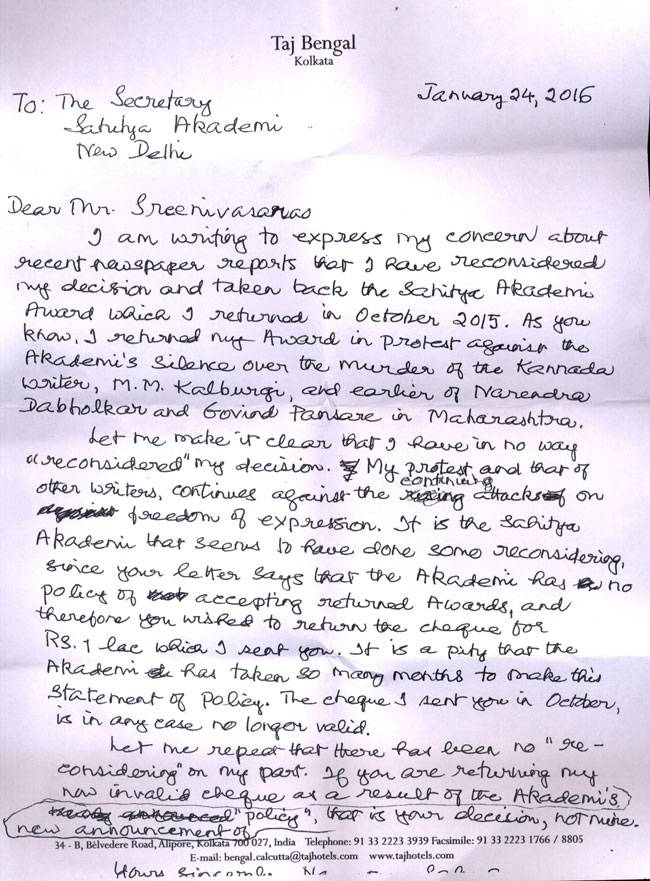 Taj Bengal
Kolkata
January 24, 2016
To: The Secretary
Sahitya Akademi
New Delhi
Dear Mr. Sreenivasarao
I am writing to express my concern about
recent newspaper reports that I have reconsidered
my decision and taken back the Sahitya Akademi
Award which I returned in October 2015. As you
know, I returned my Award in protest against the
Akademi's silence over the murder of the Kannada
writer, M.M. Kalburgi, and earlier of Narendra
Dabholkar and Govind Pansare in Maharashtra.
Let me make it clear that I have in no way
"reconsidered" my decision. My protest, and that of
other writers, continues against the continuing attacks on
freedom of expression. It is the Sahitya
Akademi that seems to have done some reconsidering,
since your letter says that the Akademi has no
policy of accepting returned Awards, and
therefore you wished to return the cheque for
Rs. 1 lac which I sent you. It is a pity that the
Akademi has taken so many months to make this
statement of policy. The cheque I sent you in October,
is in any case no longer valid.
Let me repeat that there has been no "re-
considering" on my part. If you are returning my
now invalid cheque as a result of the Akademi's
new announcement of "policy", that is your decision, not mine.
34 - B, Belvedere Road, Alipore, Kolkata 700 027, India Telephone: 91 33 2223 3939 Facsimile: 91 33 2223 1766 / 8805
E-mail: bengal.calcutta@tajhotels.com www.tajhotels.com
Yours